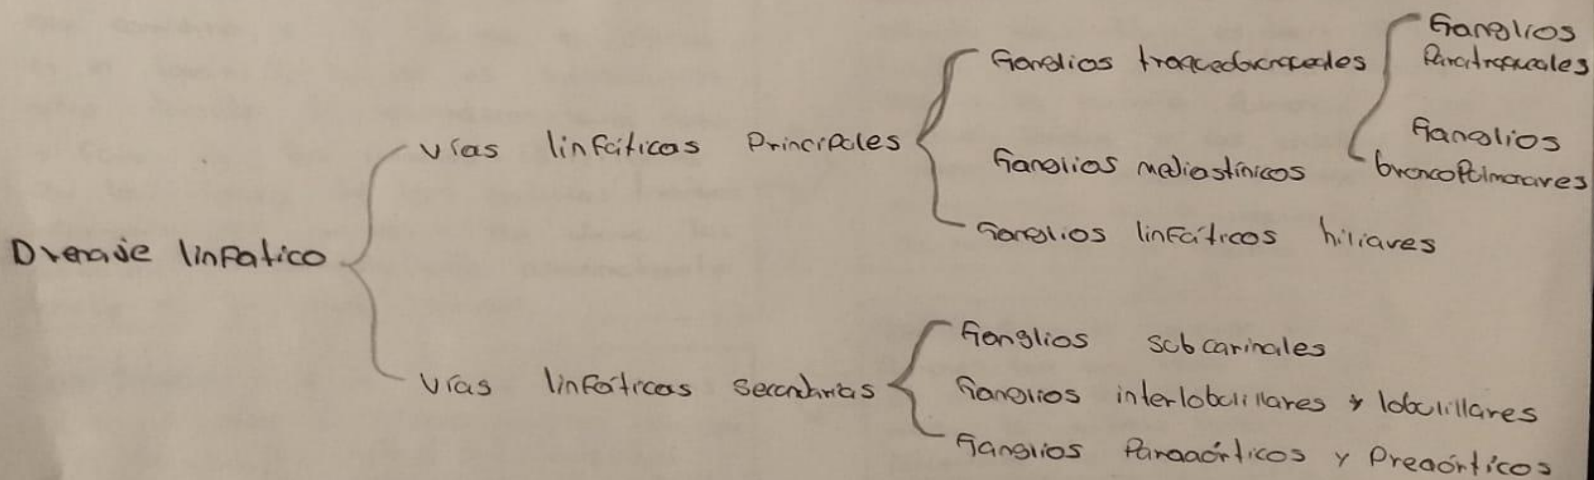 Drenaje linfatico
Vías linfáticas Principales
Ganglios traqueobronqueales
Ganglios
Paratraqueales
Ganglios
broncopulmonares
Ganglios mediastínicos
Ganglios linfáticos hiliares
Vías linfáticas secundarias
Ganglios subcarinales
Ganglios interlobulillares y lobulillares
Ganglios Paraaórticos y Preaórticos